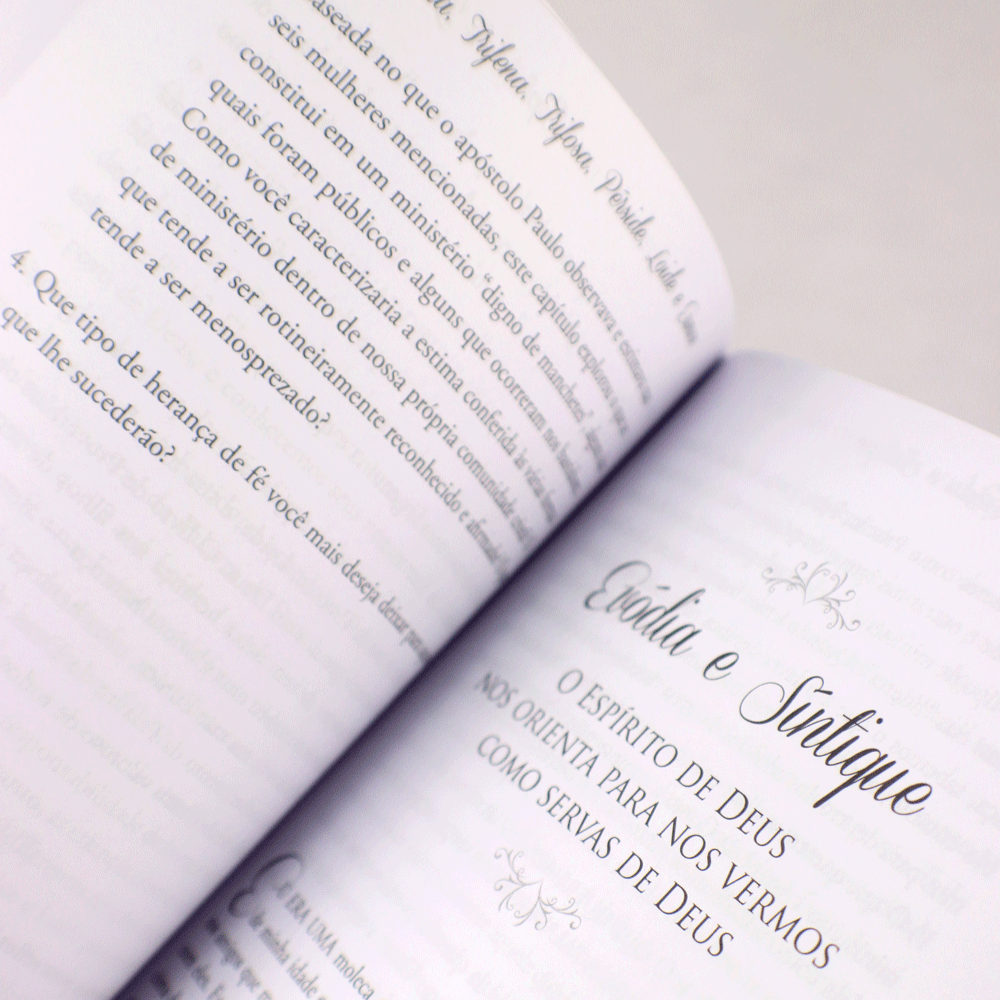 Trifena, Trifosa, Pérside, Loide e
baseada no que o apóstolo Paulo observava e
seis mulheres mencionadas, este capítulo explorou o que
constitui em um ministério “digno de manchetes”
quais foram públicos e alguns que ocorreram nos
Como você caracterizaria a estima conferida às várias
de ministério dentro de nossa própria comunidade
que tende a ser rotineiramente reconhecido e
tende a ser menosprezado?
4. Que tipo de herança de fé você mais deseja deixar
que lhe sucederão?
Evódia e Síntique
O ESPÍRITO DE DEUS
NOS ORIENTA PARA NOS VERMOS
COMO SERVAS DE DEUS
EU ERA UMA moleca
de minha idade